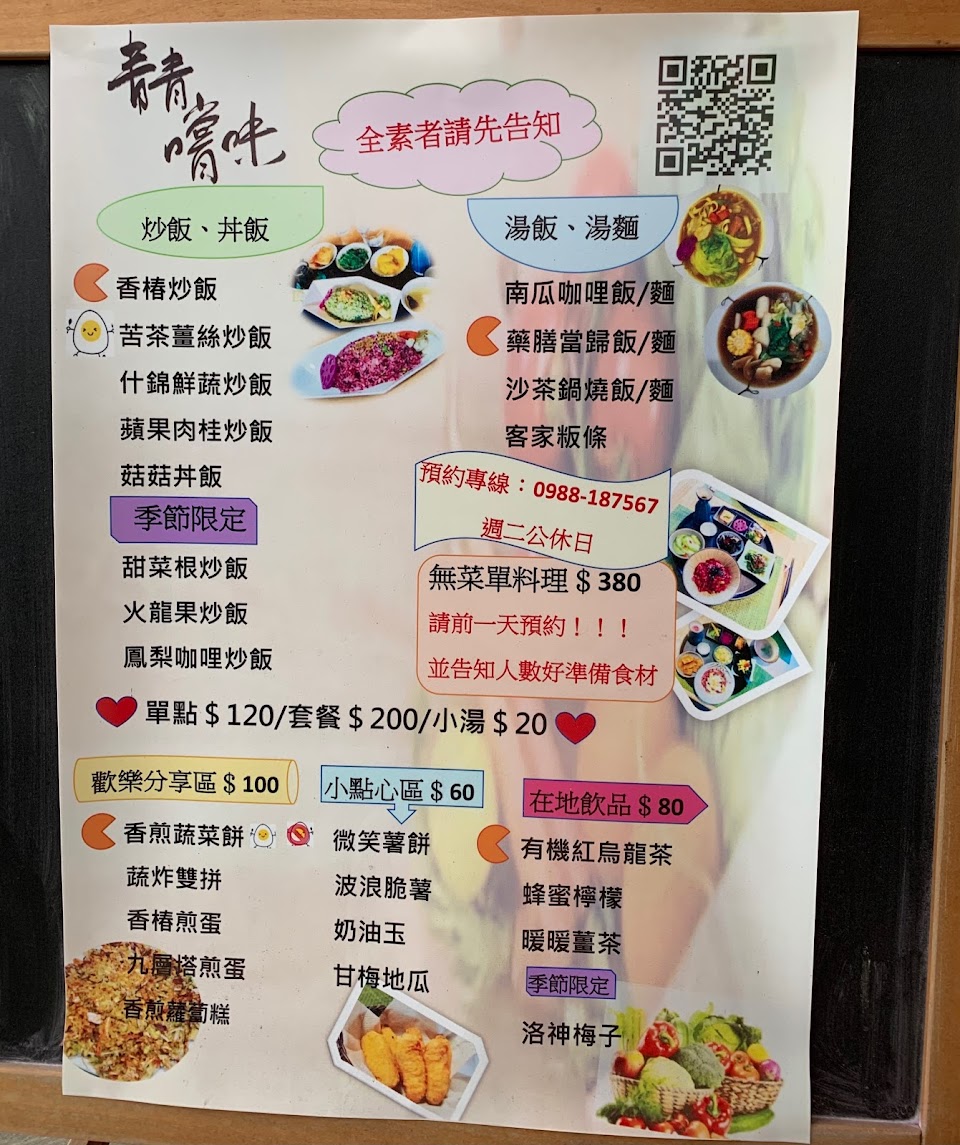 青青
嚐味
全素者請先告知
炒飯、丼飯
香椿炒飯
苦茶薑絲炒飯
什錦鮮蔬炒飯
蘋果肉桂炒飯
菇菇丼飯
季節限定
甜菜根炒飯
火龍果炒飯
鳳梨咖哩炒飯
湯飯、湯麵
南瓜咖哩飯/麵
藥膳當歸飯/麵
沙茶鍋燒飯/麵
客家粄條
預約專線：0988-187567
週二公休日
無菜單料理＄380
請前一天預約！！！
並告知人數好準備食材
單點＄120/套餐＄200/小湯＄20
歡樂分享區＄100
香煎蔬菜餅
蔬炸雙拼
香椿煎蛋
九層塔煎蛋
香煎蘿蔔糕
小點心區＄60
微笑薯餅
波浪脆薯
奶油玉
甘梅地瓜
在地飲品＄80
有機紅烏龍茶
蜂蜜檸檬
暖暖薑茶
季節限定
洛神梅子